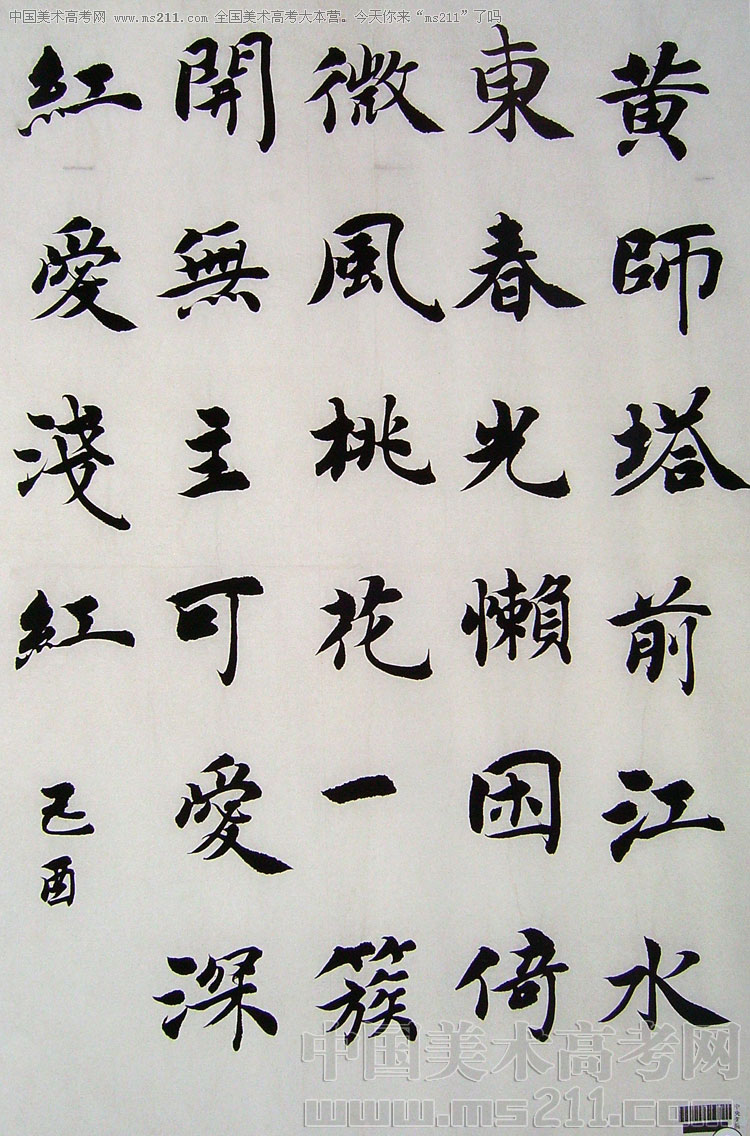 中国美术高考网 www.ms211.com 全国美术高考大本营。今天你来“ms211”了吗
黄師塔前江水
東春光懶困倚
微風桃花一簇
開無主可愛深
紅愛淺紅
己酉
中国美术高考网
www.ms211.com